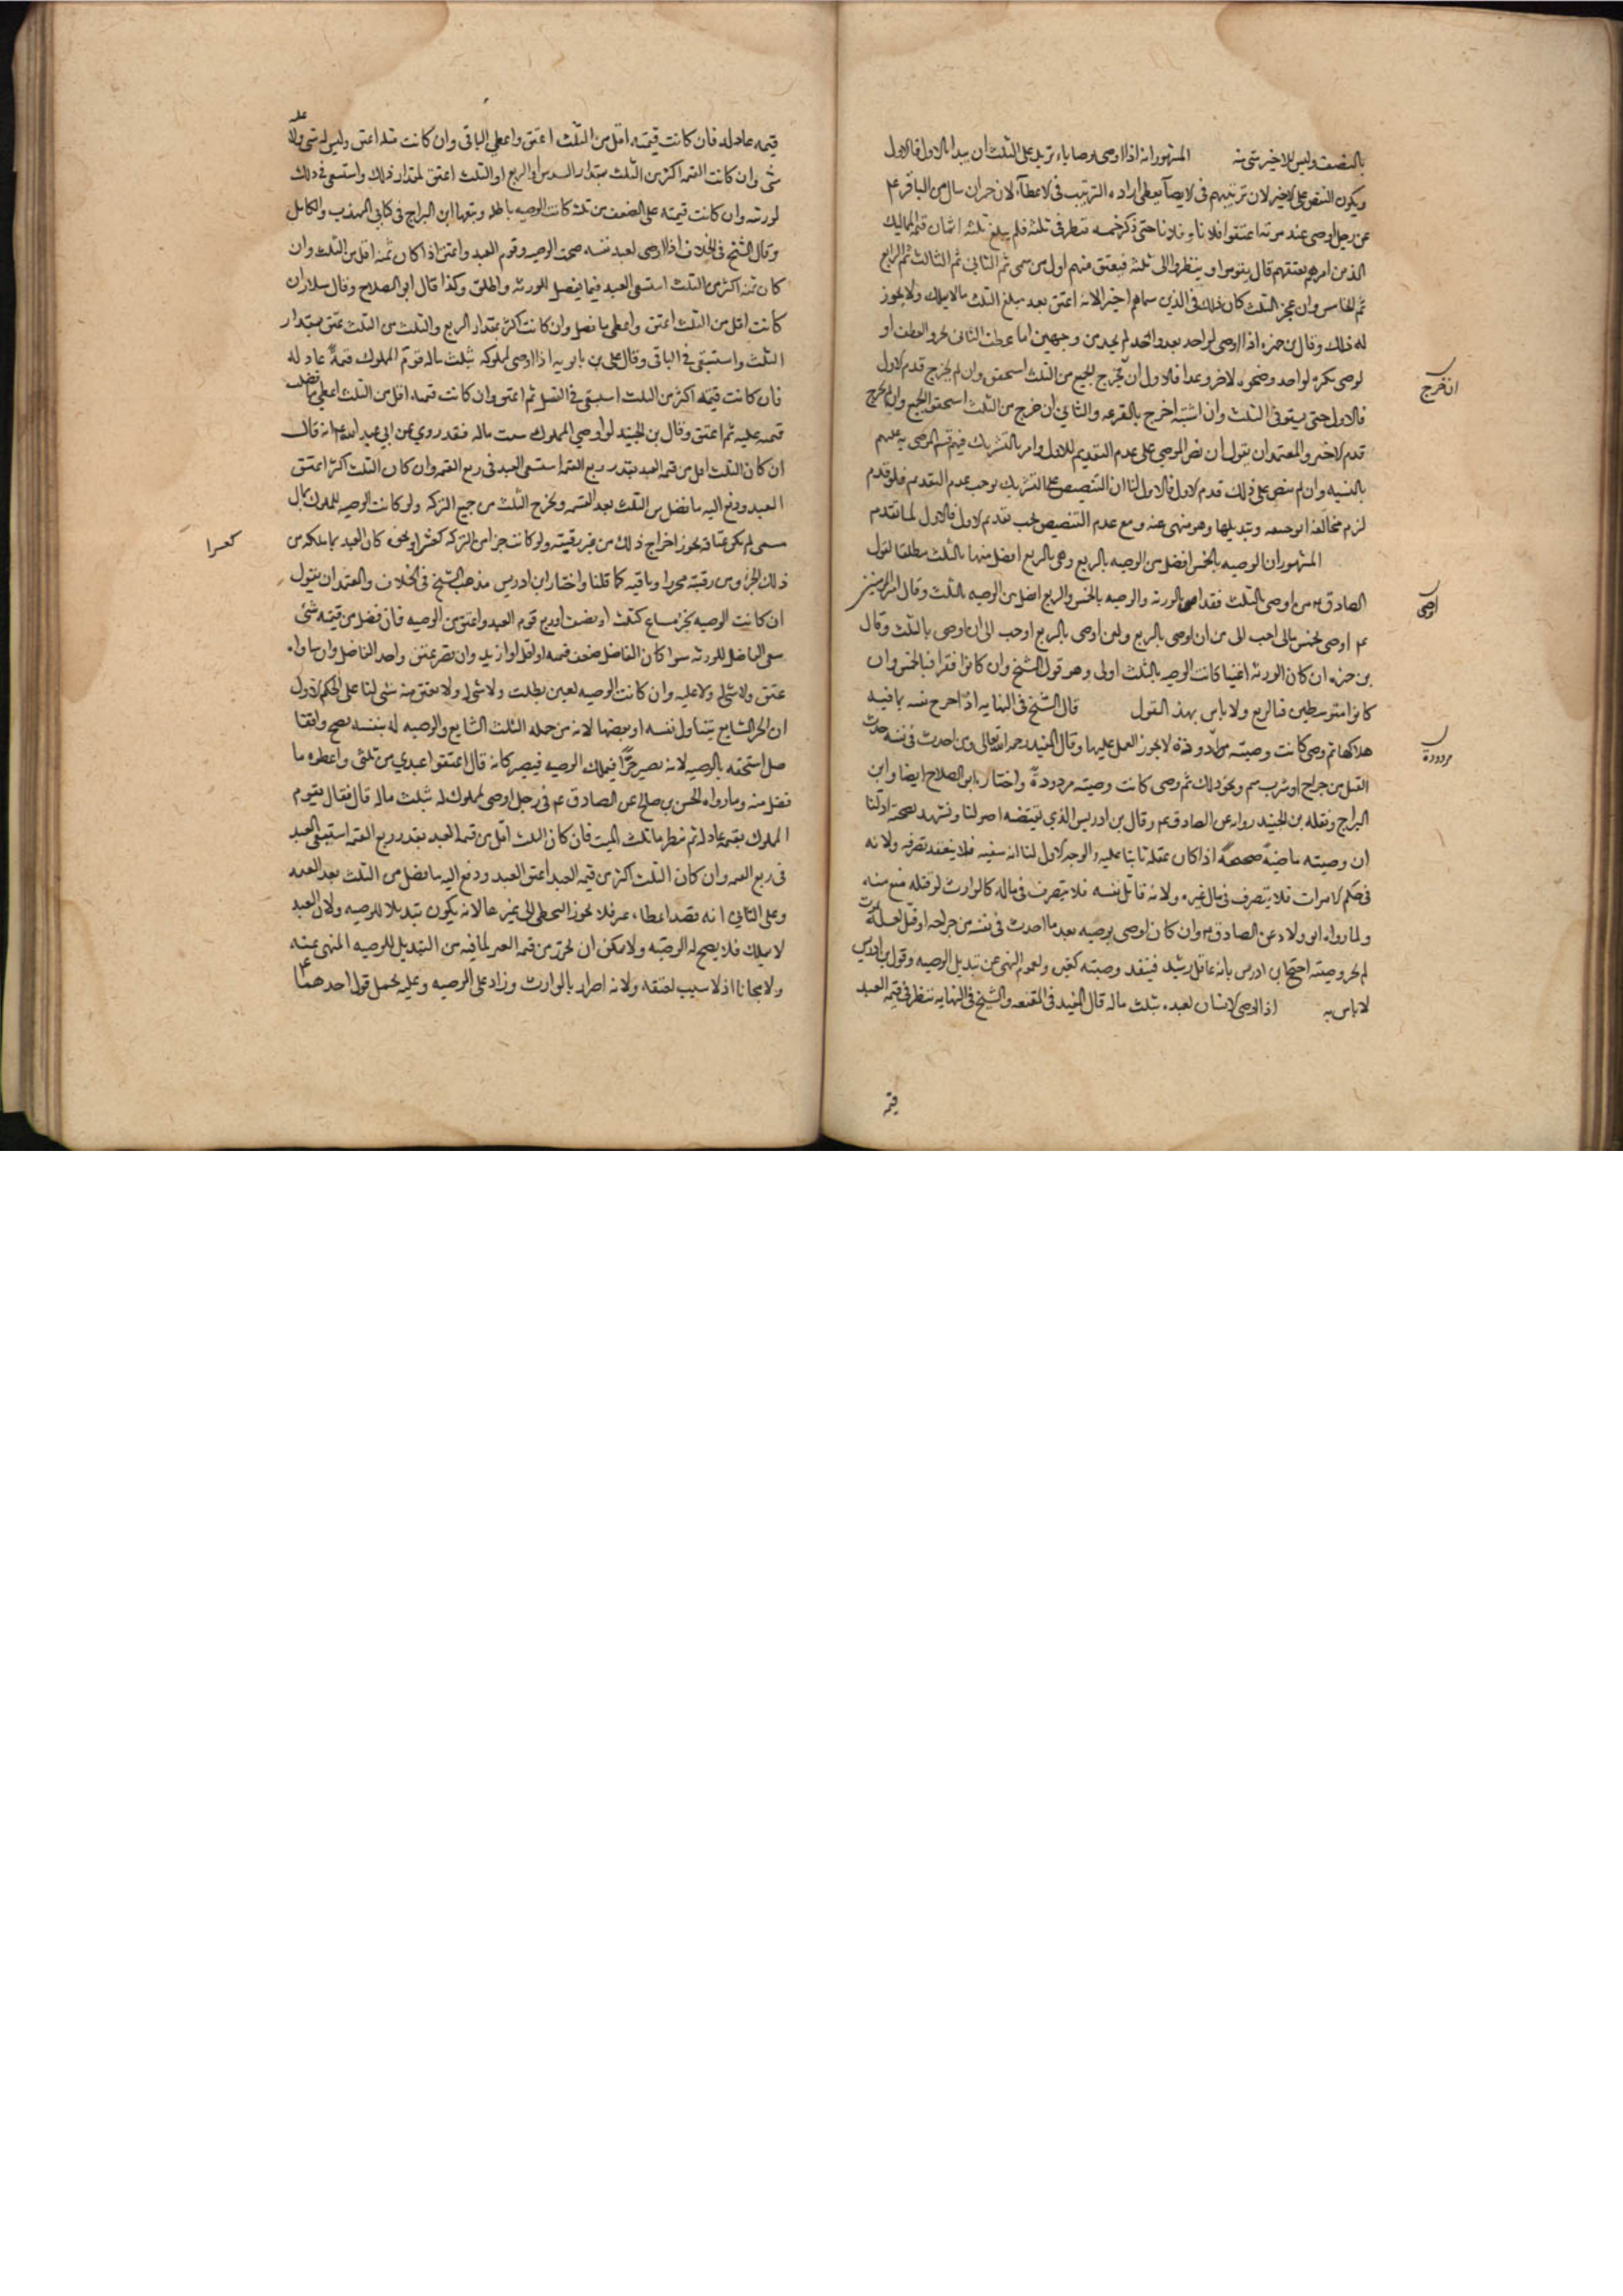 بالنصف وليس للاخير شى منه المشهور انه اذا اوصى بوصايا تزيد على الثلث ان يبدا بالاول فالاول
ويكون النقص على الاخير لان ترتيبهم فى الايصا يعطى ارادة الترتيب فى الاعطآء لان حمران سال من الباقر عم
عن رجل اوصى عند موته اعتقوا فلانا وفلانا حتى ذكر خمسه فنظر فى ثلثه فلم يبلغ ثلثه اثمان قيمة المماليك
الذين امرهم بعتقهم قال يقومون وينظر الى ثلثه فيعتق منهم اول من سمى ثم الثانى ثم الثالث ثم الرابع
ثم الخامس وان عجز الثلث كان ذلك فى الذين سماهم اخيرا لانه اعتق بعد مبلغ الثلث مالا يملك ولا يجوز
له ذلك وقال بن حمزه اذا اوصى لواحد بعد واحد لم يخل من وجهين اما عطف الثانى بحرف العطف او
لوصى بكرة لواحد وضحوه لاخر وعدا فالاول ان يخرج الجميع من الثلث استحق وان لم يخرج قدم الاول
فالاول حتى يستوفى الثلث وان اشتبه اخرج بالقرعه والثانى ان خرج من الثلث استحق الجميع وان لم يخرج
قدم الاخير والمعتمد ان يقول ان نص الموصى على عدم التقديم للاول وامر بالتشريك فيهم قسم الموصى به عليهم
بالنسبه وان لم ينص على ذلك قدم الاول فالاول لنا ان التنصيص على التشريك يوجب عدم التقديم فلو قدم
لزم مخالفة الوصيه وتبديلها وهو منهى عنه ومع عدم التنصيص يجب تقديم الاول فالاول لما تقدم
المشهور ان الوصيه بالخمس افضل من الوصيه بالربع وهى بالربع افضل منها بالثلث مطلقا لقول
الصادق عم من اوصى بالثلث فقد اضر بالورثه والوصيه بالخمس والربع افضل من الوصيه بالثلث وقال امير المومنين
عم اوصى بخمس مالى احب الى من ان اوصى بالربع ولئن اوصى بالربع احب الى ان اوصى بالثلث وقال
بن حمزه ان كان الورثه اغنيا كانت الوصيه بالثلث اولى وهو قول الشيخ وان كانوا فقرا فبالخمس وان
كانوا متوسطين فبالربع ولا باس بهذا القول قال الشيخ فى النهايه اذا جرح نفسه بما فيه
هلاكها ثم وصى كانت وصيته مردودة لا يجوز العمل عليها وقال المفيد رحمه الله تعالى ومن احدث فى نفسه حدث
القتل من جراح او شرب سم ونحو ذلك ثم وصى كانت وصيته مردودةً واختاره ابو الصلاح ايضا وابن
البراج ونقله بن الجنيد رواه عن الصادق عم وقال بن ادريس الذى يقتضيه اصولنا وتشهد بصحته ادلتنا
ان وصيته ماضيةٌ صحيحةٌ اذا كان عقله ثابتا عليه والوجه الاول لنا انه سفيه فلا ينعقد تصرفه ولانه
فى حكم الاموات فلا يتصرف فى مال غيره ولانه قاتل نفسه فلا يتصرف فى ماله كالوارث لو قتله منع منه
ولما رواه ابو ولاد عن الصادق عم وان كان اوصى بوصيه بعد ما احدث فى نفسه من جراحه او فعل لعله يموت
لم يجز وصيته احتج بن ادريس بانه عاقل رشيد فينفذ وصيته كغيره ولعموم النهى عن تبديل الوصيه وقول بن ادريس
لا باس به اذا اوصى الانسان لعبده بثلث ماله قال المفيد فى المقنعه والشيخ فى النهايه ينظر فى قيمة العبد
ان خرج
اوصى
مردودة
قيمه
قيمه عادله فان كانت قيمته اقل من الثلث اعتق واعطى الباقى وان كانت مثله اعتق وليس له شى ولا عليه
شى وان كانت القيمه اكثر من الثلث بمقدار السدس او الربع او الثلث اعتق بمقدار ذلك واستسعى فى ذلك
لورثته وان كانت قيمته على الضعف من ثلثه كانت الوصيه باطله وتبعهما ابن البراج فى كتابى المهذب والكامل
وقال الشيخ فى الخلاف اذا اوصى لعبد نفسه صحت الوصيه وقوم العبد واعتق اذا كان ثمنه اقل من الثلث وان
كان ثمنه اكثر من الثلث استسعى العبد فيما يفضل للورثه واطلق وكذا قال ابو الصلاح وقال سلار ان
كانت اقل من الثلث اعتق واعطى ما فضل وان كانت اكثر بمقدار الربع والثلث من الثلث عتق بمقدار
الثلث واستسعى فى الباقى وقال على بن بابويه اذا اوصى لمملوكه بثلث ماله قوّم المملوك قيمةً عادله
فان كانت قيمته اكثر من الثلث استسعى فى الفضل ثم اعتق وان كانت قيمته اقل من الثلث اعطى ما فضل
قيمته عليه ثم اعتق وقال بن الجنيد لو اوصى المملوك بثلث ماله فقد روى عن ابى عبد الله عم انه قال
ان كان الثلث اقل من قيمه العبد بقدر ربع القيمه استسعى العبد فى ربع القيمه وان كان الثلث اكثر اعتق
العبد ودفع اليه ما فضل من الثلث بعد القيمه ويخرج الثلث من جميع التركه ولو كانت الوصيه للمملوك بمال
مسمى لم يكن عتاقه يجوز اخراج ذلك من غير رقبته ولو كانت جزا من التركه كعشر او نحوه كان العبد بما ملكه من
ذلك الجزء من رقبته محررا وباقيه كما قلنا واختار ابن ادريس مذهب الشيخ فى الخلاف والمعتمد ان يقول
ان كانت الوصيه بجزء مشاع كثلث او نصف او ربع قوم العبد واعتق من الوصيه فان فضل من قيمته شى
سعى الباقى للورثه سوا كان الفاضل ضعف قيمه او اقل او ازيد وان قصر عتق واخذ الفاضل وان ساواه
عتق ولا شى له ولا عليه وان كانت الوصيه بعين بطلت ولا شى له ولا يعتق منه شى لنا على الحكم الاول
ان الجزء الشايع يتناول نفسه او بعضها لانه من جمله الثلث الشايع والوصيه له بنفسه تصح واقفا
استحقه بالوصيه لانه يصير حرًّا فيملك الوصيه فيصير كانه قال اعتقوا عبدى من ثلثى واعطوه ما
فضل منه وما رواه الحسن بن صالح عن الصادق عم فى رجل اوصى لمملوك له بثلث ماله قال فقال يقوم
المملوك بقيمه عادله ثم ينظر ما ثلث الميت فان كان الثلث اقل من قيمة العبد بقدر ربع القيمه استسعى العبد
فى ربع القيمه وان كان الثلث اكثر من قيمه العبد اعتق العبد ودفع اليه ما فضل من الثلث بعد القيمه
وعلى الثانى انه قصد اعطاءه عين فلا يجوز التخطى الى غيرها لانه يكون تبديلا للوصيه ولان العبد
لا يملك فلا يصح له الوصيه ولا يمكن ان يحرر من قيمه العين لما فيه من التبديل للوصيه المنهى عنه
ولا مجانا اذ لا سبب لعتقه ولانه اضرار بالوارث وزاد على الوصيه وعليه يحمل قول احدهما